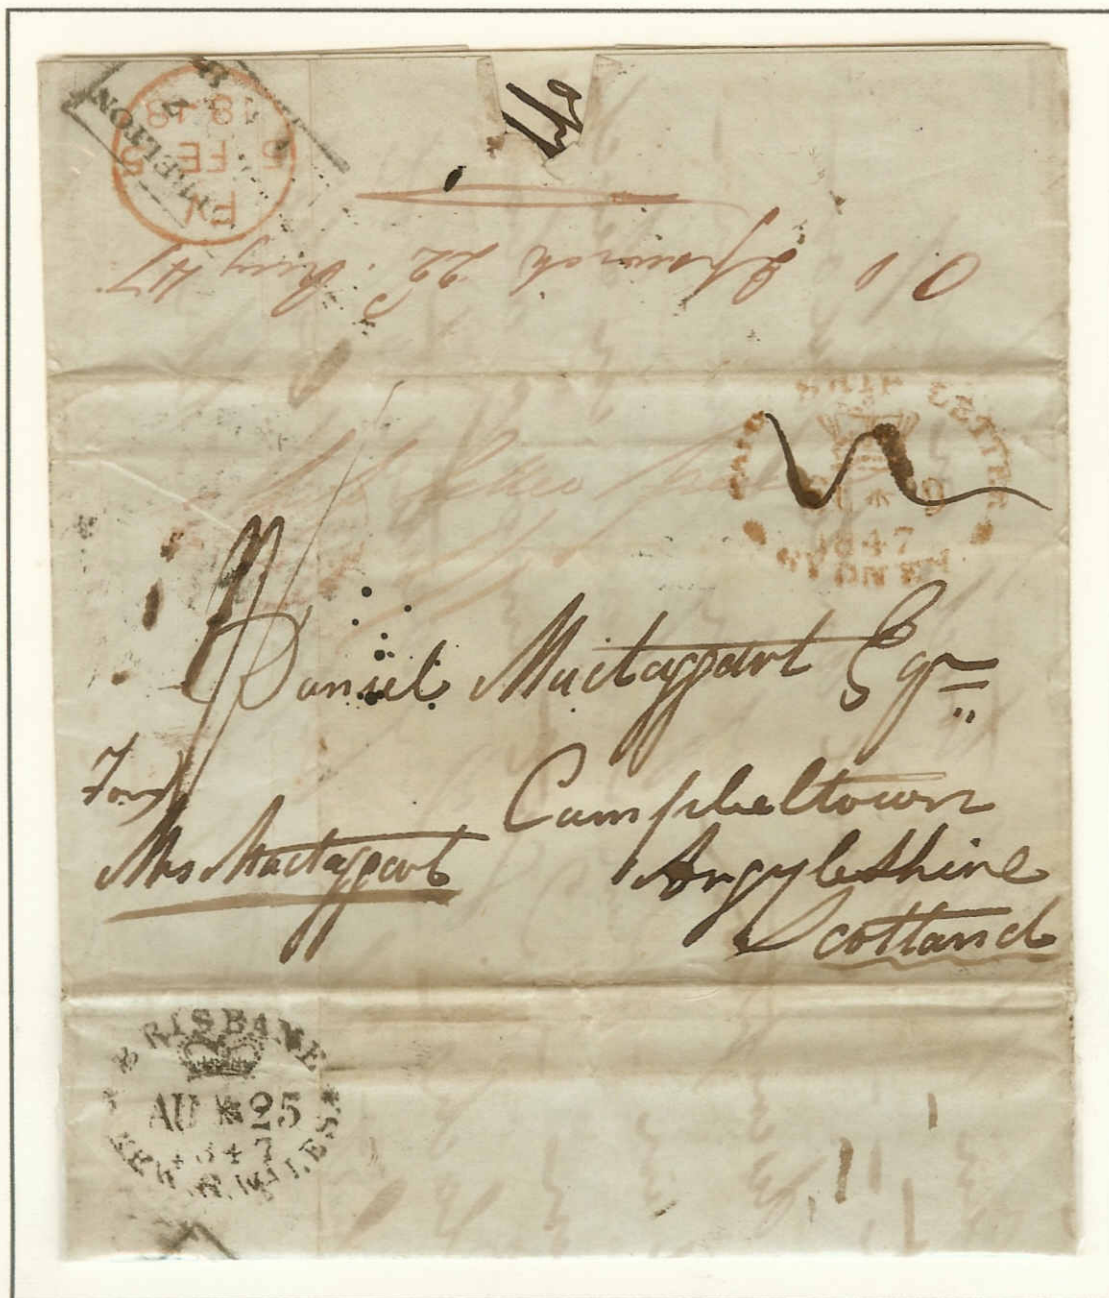 MELTON
FN
5 FE 5
1848
O/d Ipswich 22d Aug 47
PAID SHIP LETTER
1847
SYDNEY
Daniel Mactaggart Esqr
Campbeltown
Argyleshire
Scotland
For
Mrs Mactaggart
BRISBANE
AU * 25
1847
NEW.S.WALES.